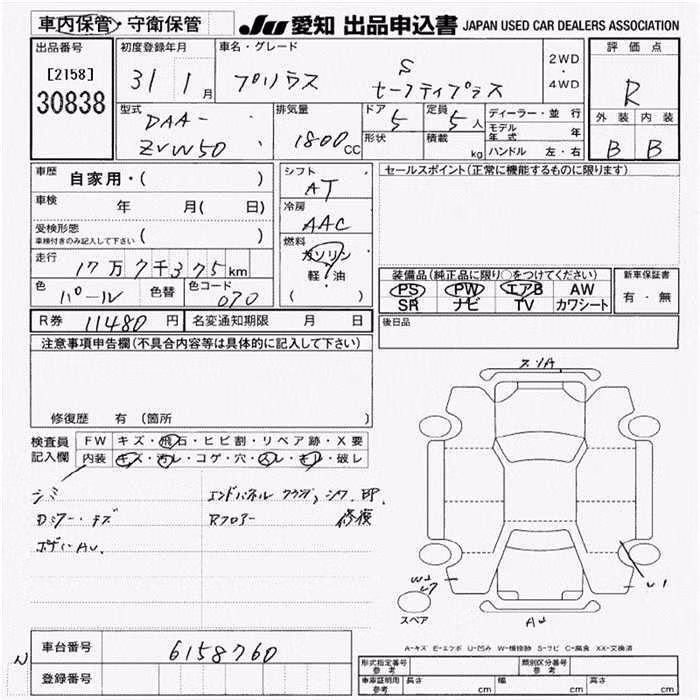 車内保管・守衛保管 JU 愛知 出品申込書 JAPAN USED CAR DEALERS ASSOCIATION
出品番号
[2158]
30838
初度登録年月
31 1月
車名・グレード
プリウス S セーフティプラス
2WD・4WD
評価点
R
外装 内装
B B
型式
DAA-
ZVW50
排気量
1800cc
ドア 5
定員 5人
形状
積載 kg
ディーラー・並行
モデル年式 年
ハンドル 左・右
車歴 自家用・( )
車検 年 月( 日)
受検形態
車検付きのみ記入して下さい ( )
走行 17万7千375km
色 パール 色替 色コード 070
シフト AT
冷房 AAC
燃料
ガソリン
軽・油
( )
セールスポイント(正常に機能するものに限ります)
装備品(純正品に限り○をつけてください)
PS PW エアB AW
SR ナビ TV カワシート
新車保証書
有・無
後日品
R券 11480円 名変通知期限 月 日
注意事項申告欄(不具合内容等は具体的に記入して下さい)
修復歴 有(箇所
検査員記入欄
FW キズ・飛石・ヒビ割・リペア跡・X要
内装 キズ・汚レ・コゲ・穴・スレ・キレ・破レ
シミ
エンドパネル
Rフロアー 修復
スリA
W2
U1
AU
スペア
A-キズ E-エクボ U-凹み W-補修跡 S-サビ C-腐食 XX-交換済
車台番号 6158760
登録番号
N
形式指定番号 参考
類別区分番号 参考
車庫証明用 参考 長さ cm 幅 cm 高さ cm